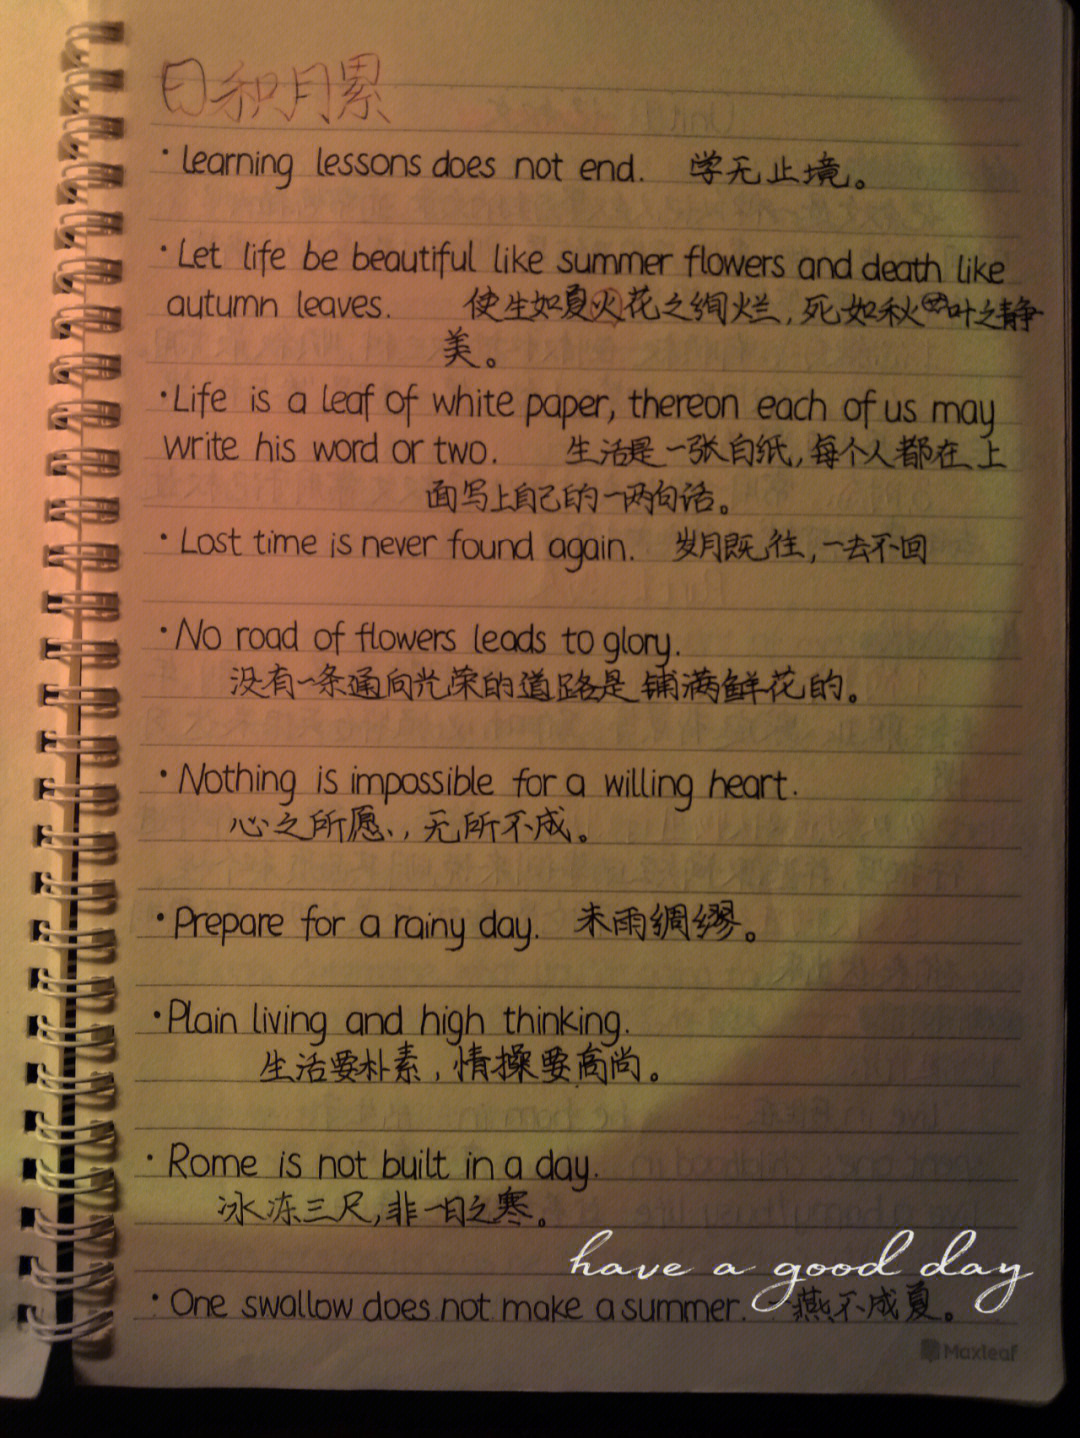 日积月累
· learning lessons does not end. 学无止境。
· Let life be beautiful like summer flowers and death like
autumn leaves. 使生如夏火花之绚烂,死如秋叶之静
美。
· Life is a leaf of white paper, thereon each of us may
write his word or two. 生活是一张白纸,每个人都在上
面写上自己的一两句话。
· Lost time is never found again. 岁月既往,一去不回
· No road of flowers leads to glory.
没有一条通向光荣的道路是铺满鲜花的。
· Nothing is impossible for a willing heart.
心之所愿、,无所不成。
· Prepare for a rainy day. 未雨绸缪。
· Plain living and high thinking.
生活要朴素,情操要高尚。
· Rome is not built in a day.
冰冻三尺,非一日之寒。
have a good day
· One swallow does not make a summer. 一燕不成夏。
Maxleaf